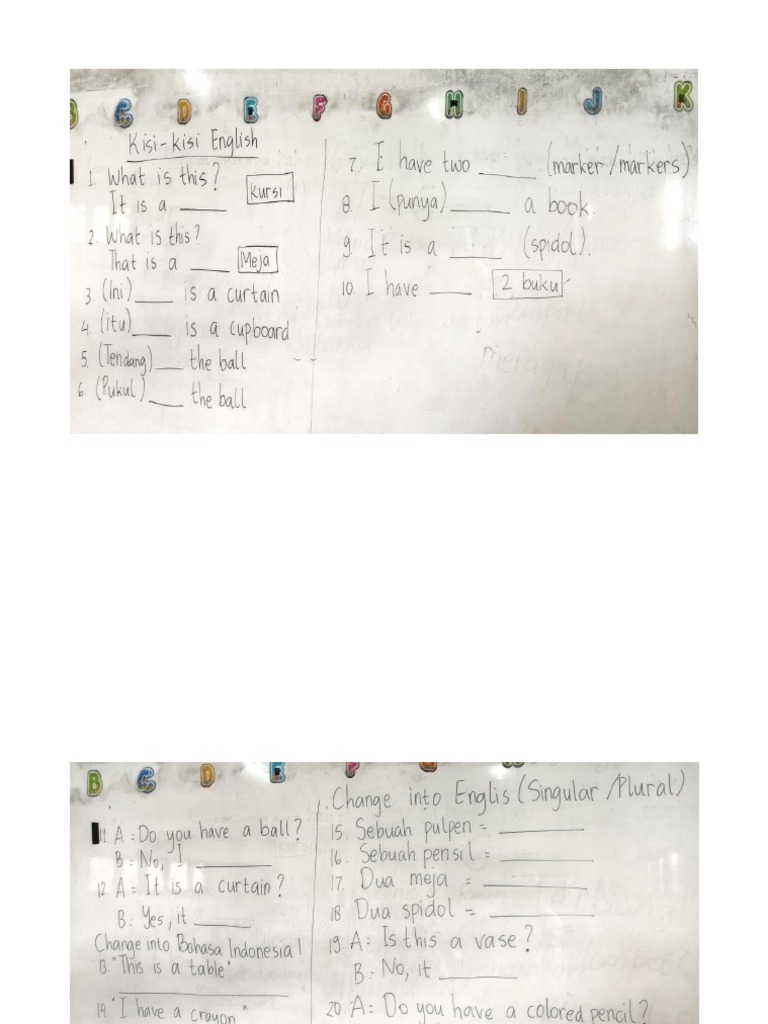 B C D E F G H I J K
Kisi-kisi English
1. What is this?
It is a ____ Kursi
2. What is this?
That is a ____ Meja
3. (Ini)____ is a curtain
4. (itu)____ is a cupboard
5. (Tendang)____ the ball
6. (Pukul)____ the ball
7. I have two ____ (marker/markers)
8. I (punya)____ a book.
9. It is a ____ (spidol).
10. I have ____ 2 buku
B C D E F G H
11. A = Do you have a ball?
B = No, I ____
12. A = It is a curtain?
B: Yes, it ____
Change into Bahasa Indonesia!
13. "This is a table"
____
14. "I have a crayon"
Change into Englis (Singular/Plural)
15. Sebuah pulpen = ____
16. Sebuah pensil = ____
17. Dua meja = ____
18. Dua spidol = ____
19. A = Is this a vase?
B = No, it ____
20. A = Do you have a colored pencil?